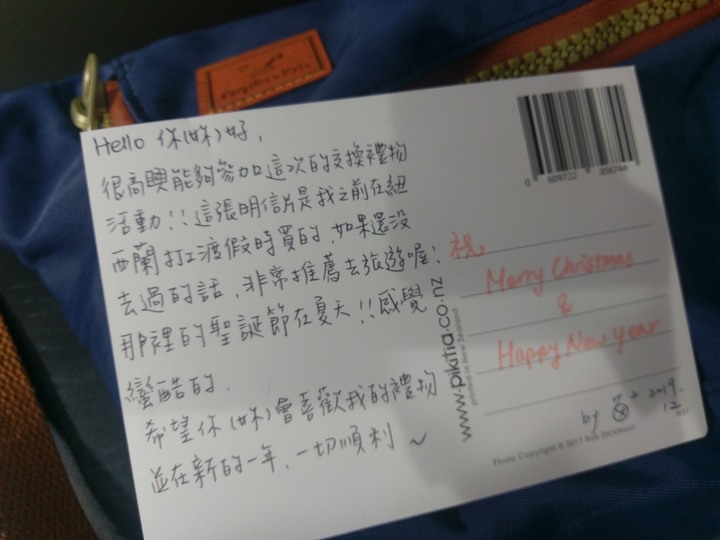 Hello 你(妳)好，
很高興能夠參加這次的交換禮物
活動!! 這張明信片是我之前在紐
西蘭打工渡假時買的，如果還沒
去過的話，非常推薦去旅遊喔!
那裡的聖誕節在夏天!! 感覺
蠻酷的.
希望你(妳)會喜歡我的禮物
並在新的一年，一切順利～
0 609722 898744
祝
Merry Christmas
&
Happy New Year
by
2019.
12
www.pikitia.co.nz
Printed in New Zealand
Photo Copyright © 2017 Rob Dickinson